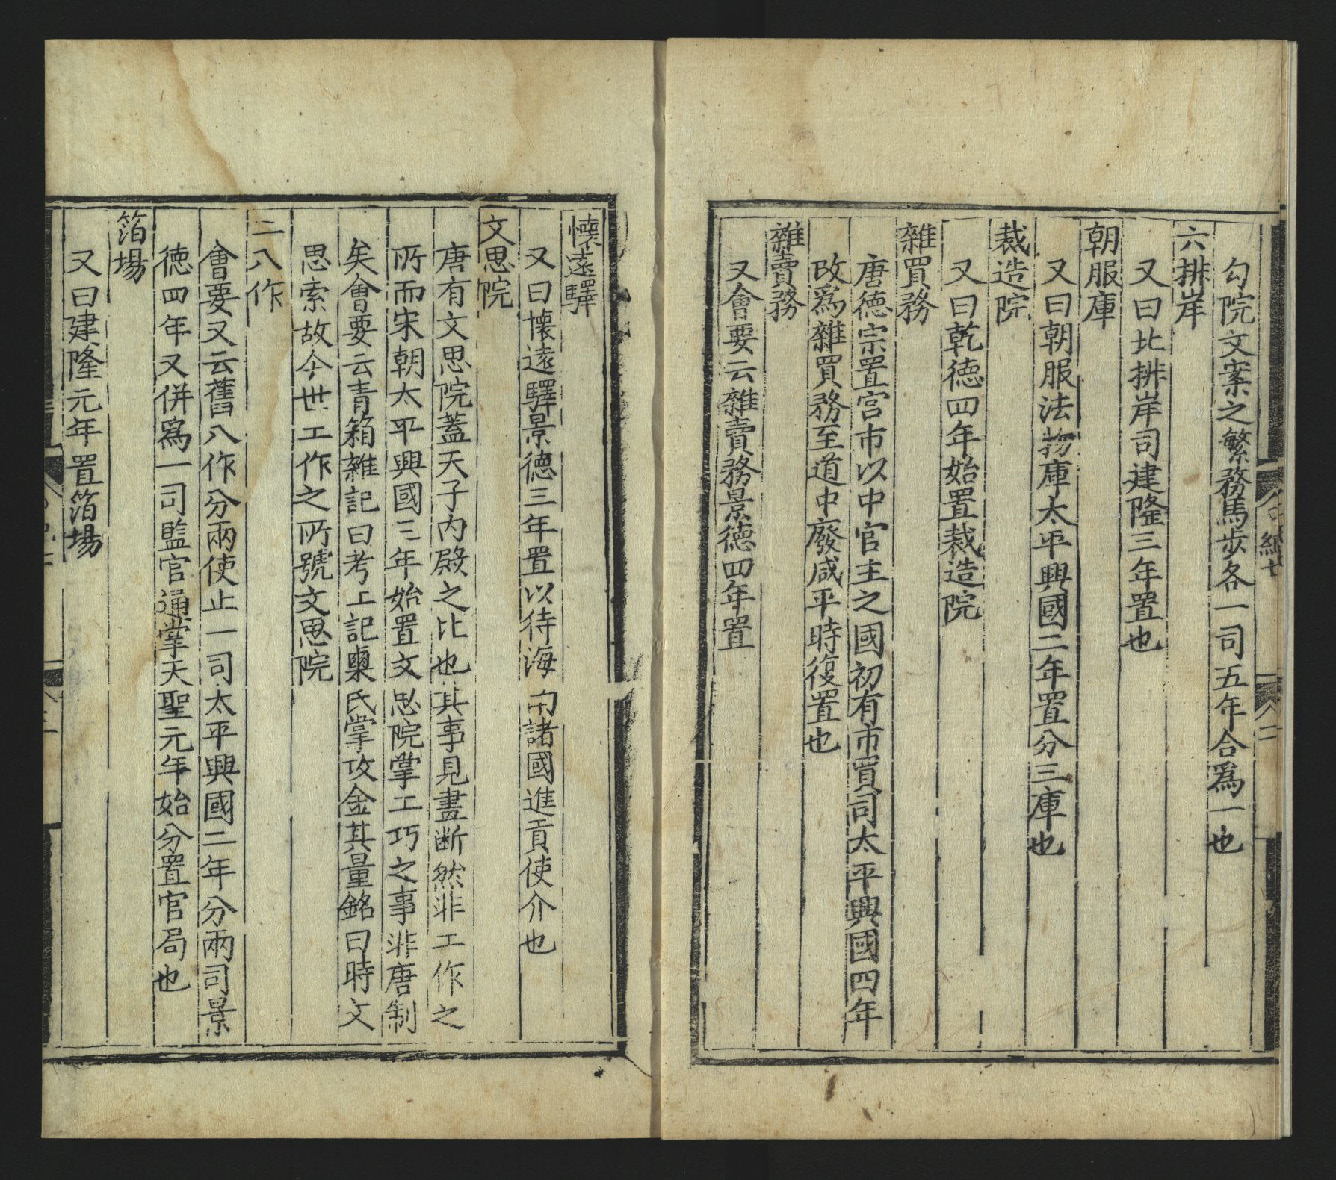 勾院文案之繁務馬步各一司五年合爲一也
六排岸
又曰北排岸司建隆三年置也
朝服庫
又曰朝服法物庫太平興國二年置分三庫也
裁造院
又曰乾德四年始置裁造院
雜買務
唐德宗置宮市以中官主之國初有市買司太平興國四年
改爲雜買務至道中廢咸平時復置也
雜賣務
又會要云雜賣務景德四年置
懐遠驛
又曰懐遠驛景德三年置以待海南諸國進貢使介也
文思院
唐有文思院蓋天子內殿之比也其事見畫断然非工作之
所而宋朝太平興國三年始置文思院掌工巧之事非唐制
矣會要云青箱雜記曰考工記㮚氏掌攻金其量銘曰時文
思索故今世工作之所號文思院
二八作
會要又云舊八作分兩使止一司太平興國二年分兩司景
徳四年又併爲一司監官通掌天聖元年始分置官局也
箔場
又曰建隆元年置箔場